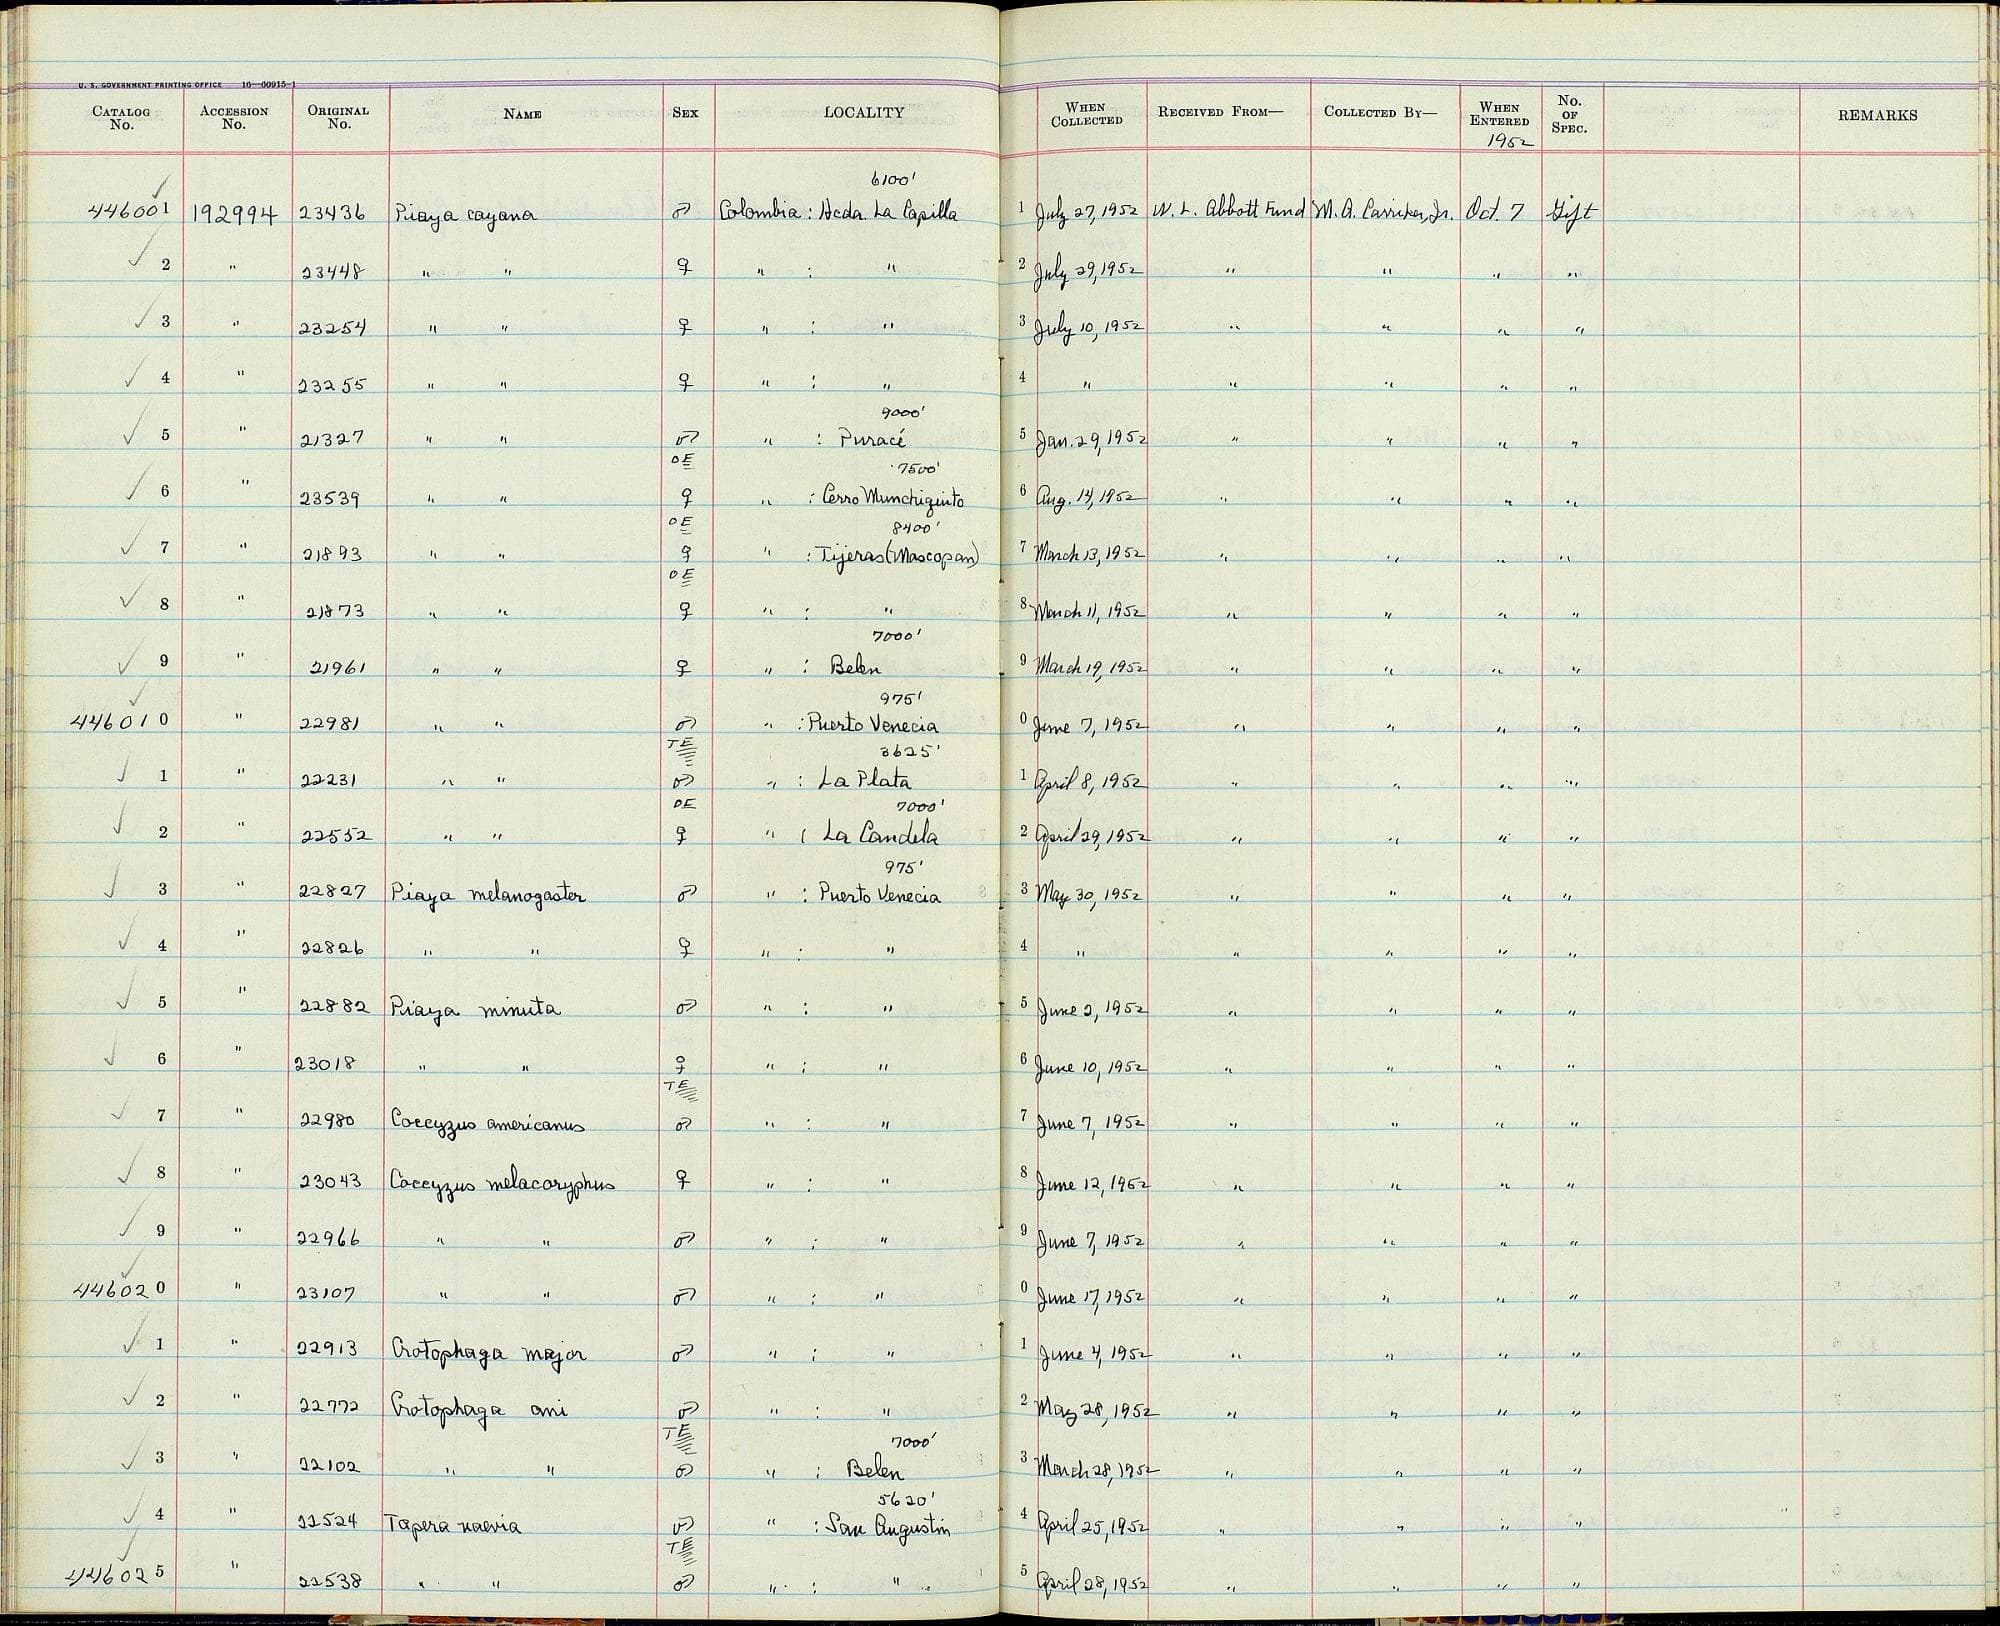 U. S. GOVERNMENT PRINTING OFFICE 16—60915-1
CATALOG No. ACCESSION No. ORIGINAL No. NAME SEX LOCALITY WHEN COLLECTED RECEIVED FROM— COLLECTED BY— WHEN ENTERED 1952 No. OF SPEC. REMARKS
6100'
446001 192994 23436 Piaya cayana ♂ Colombia : Hcda. La Capilla 1 July 27, 1952 W. L. Abbott Fund M. A. Carriker, Jr. Oct. 7 Gift
2 " 23448 " " ♀ " : " 2 July 29, 1952 " " " "
3 " 23254 " " ♀ " : " 3 July 10, 1952 " " " "
4 " 23255 " " ♀ " : " 4 " " " " "
9000'
5 " 21327 " " ♂ " : Puracé 5 Jan. 29, 1952 " " " "
OE 7500'
6 " 23539 " " ♀ " : Cerro Munchiquito 6 Aug. 14, 1952 " " " "
OE 8400'
7 " 21893 " " ♀ " : Tijeras (Moscopan) 7 March 13, 1952 " " " "
OE
8 " 21873 " " ♀ " : " 8 March 11, 1952 " " " "
7000'
9 " 21961 " " ♀ " : Belen 9 March 19, 1952 " " " "
975'
446010 " 22981 " " ♂ " : Puerto Venecia 0 June 7, 1952 " " " "
TE 3625'
1 " 22231 " " ♂ " : La Plata 1 April 8, 1952 " " " "
OE 7000'
2 " 22552 " " ♀ " ( La Candela 2 April 29, 1952 " " " "
975'
3 " 22827 Piaya melanogaster ♂ " : Puerto Venecia 3 May 30, 1952 " " " "
4 " 22826 " " ♀ " : " 4 " " " " "
5 " 22882 Piaya minuta ♂ " : " 5 June 2, 1952 " " " "
6 " 23018 " " ♀ " : " 6 June 10, 1952 " " " "
TE
7 " 22980 Coccyzus americanus ♂ " : " 7 June 7, 1952 " " " "
8 " 23043 Coccyzus melacoryphus ♀ " : " 8 June 12, 1952 " " " "
9 " 22966 " " ♂ " : " 9 June 7, 1952 " " " "
446020 " 23107 " " ♂ " : " 0 June 17, 1952 " " " "
1 " 22913 Crotophaga major ♂ " : " 1 June 4, 1952 " " " "
2 " 22772 Crotophaga ani ♂ " : " 2 May 28, 1952 " " " "
TE 7000'
3 " 22102 " " ♂ " : Belen 3 March 28, 1952 " " " "
5620'
4 " 22524 Tapera naevia ♂ " : San Augustin 4 April 25, 1952 " " " "
TE
446025 " 22538 " " ♂ " : " 5 April 28, 1952 " " " "